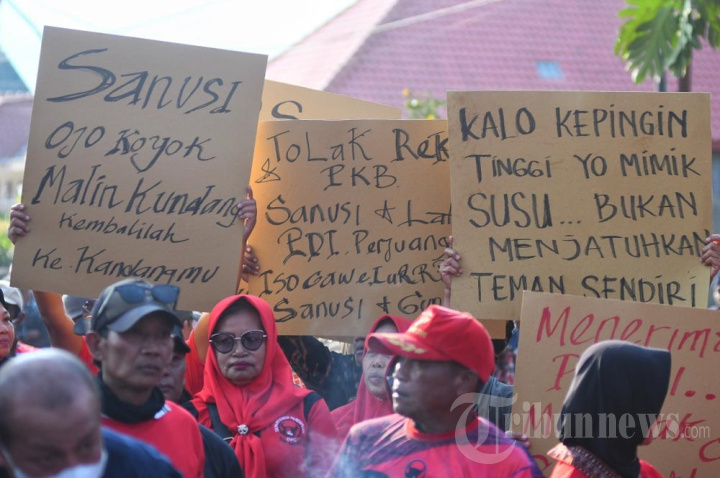 SANUSI
OJO KOYOK
Malin Kundang
Kembalilah
Ke. Kandangmu
S
ToLak Rek
& PKB.
Sanusi &
PDI. Perjuang
ISO GaWe LuRR
Sanusi &
KALO KEPINGIN
TINGGI YO MIMIK
SUSU... BUKAN
MENJATUHKAN
TEMAN SENDIRI
Menerim
Tribunnews.com